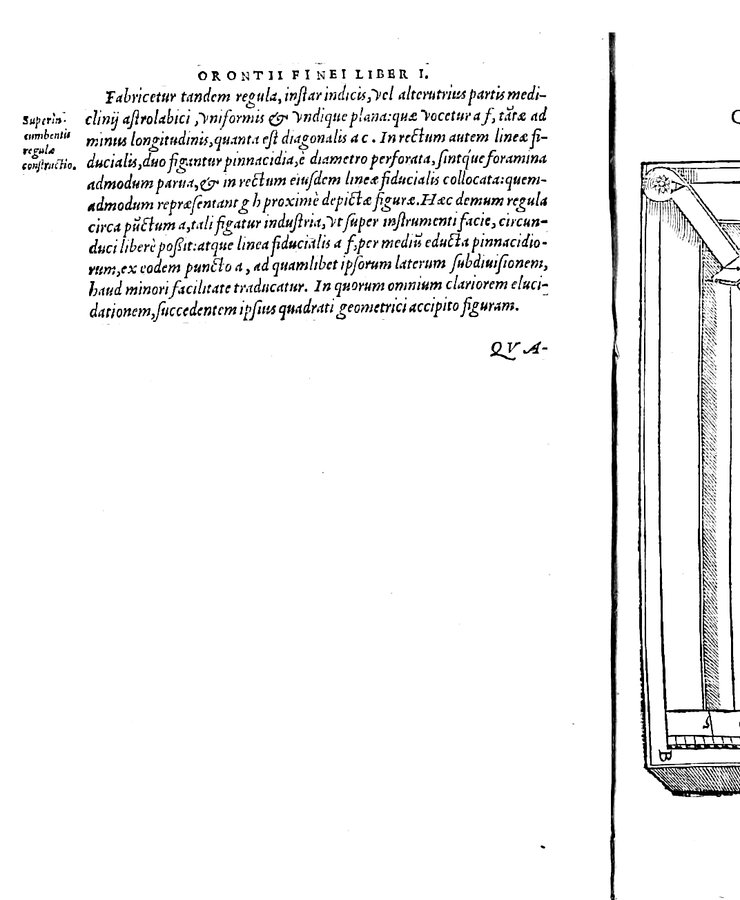 ORONTII FINEI LIBER I.
Fabricetur tandem regula, inſtar indicis, vel alterutrius partis medi-
clinij aſtrolabici, vniformis & vndique plana: quæ vocetur a f, tãtæ ad
minus longitudinis, quanta eſt diagonalis a c. In rectum autem lineæ fi-
ducialis, duo figantur pinnacidia, è diametro perforata, ſintq́ue foramina
admodum parua, & in rectum eiuſdem lineæ fiducialis collocata: quem-
admodum repræſentant g h proximè depictæ figuræ. Hæc demum regula
circa pũctum a, tali figatur induſtria, vt ſuper inſtrumenti facie, circun-
duci liberè poßit: atque linea fiducialis a f, per mediũ educta pinnacidio-
rum, ex eodem puncto a, ad quamlibet ipſorum laterum ſubdiuiſionem,
haud minori facilitate traducatur. In quorum omnium clariorem eluci-
dationem, ſuccedentem ipſius quadrati geometrici accipito figuram.
QVA-
Superin-
cumbentis
regulæ
conſtructio.
B